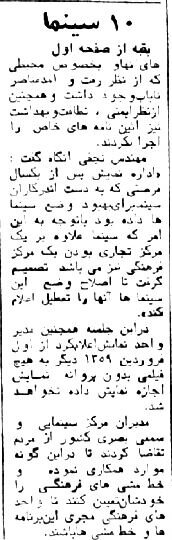 ۱۰ سینما
بقیه از صفحه اول
های نهاو بخصوص محیطی
که از نظر رفت و آمدعناصر
نابابوجود داشت و همچنین
ازنظرایمنی ، نظافت‌وبهداشت
نیز آئین نامه های خاص را
اجرا نکردند.
مهندس نجفی آنگاه گفت :
«اداره نمایش پس از یکسال
فرصتی که به دست اندرکاران
سینمابرای‌بهبود وضع سینما
ها داده بود باتوجه به این
امر که سینما علاوه بر یک
مرکز تجاری بودن یک مرکز
فرهنگی نیز می باشد تصمیم
گرفت تا اصلاح وضع این
سینما ها آنها را تعطیل اعلام
کند».
دراین جلسه همچنین مدیر
واحد نمایش‌اعلام‌کرد از اول
فروردین ۱۳۵۹ دیگر به هیچ
فیلمی بدون پروانه نمایش
اجازه نمایش داده نخواهد
شد.
مدیران مرکز سینمایی و
سمعی بصری کشور از مردم
تقاضا کردند تا دراین گونه
موارد همکاری نموده و
خط مشی های فرهنگی را
خودشان‌تعیین کنند تا واحد
های فرهنگی مجری این‌برنامه
ها و خط مشی هاباشند.